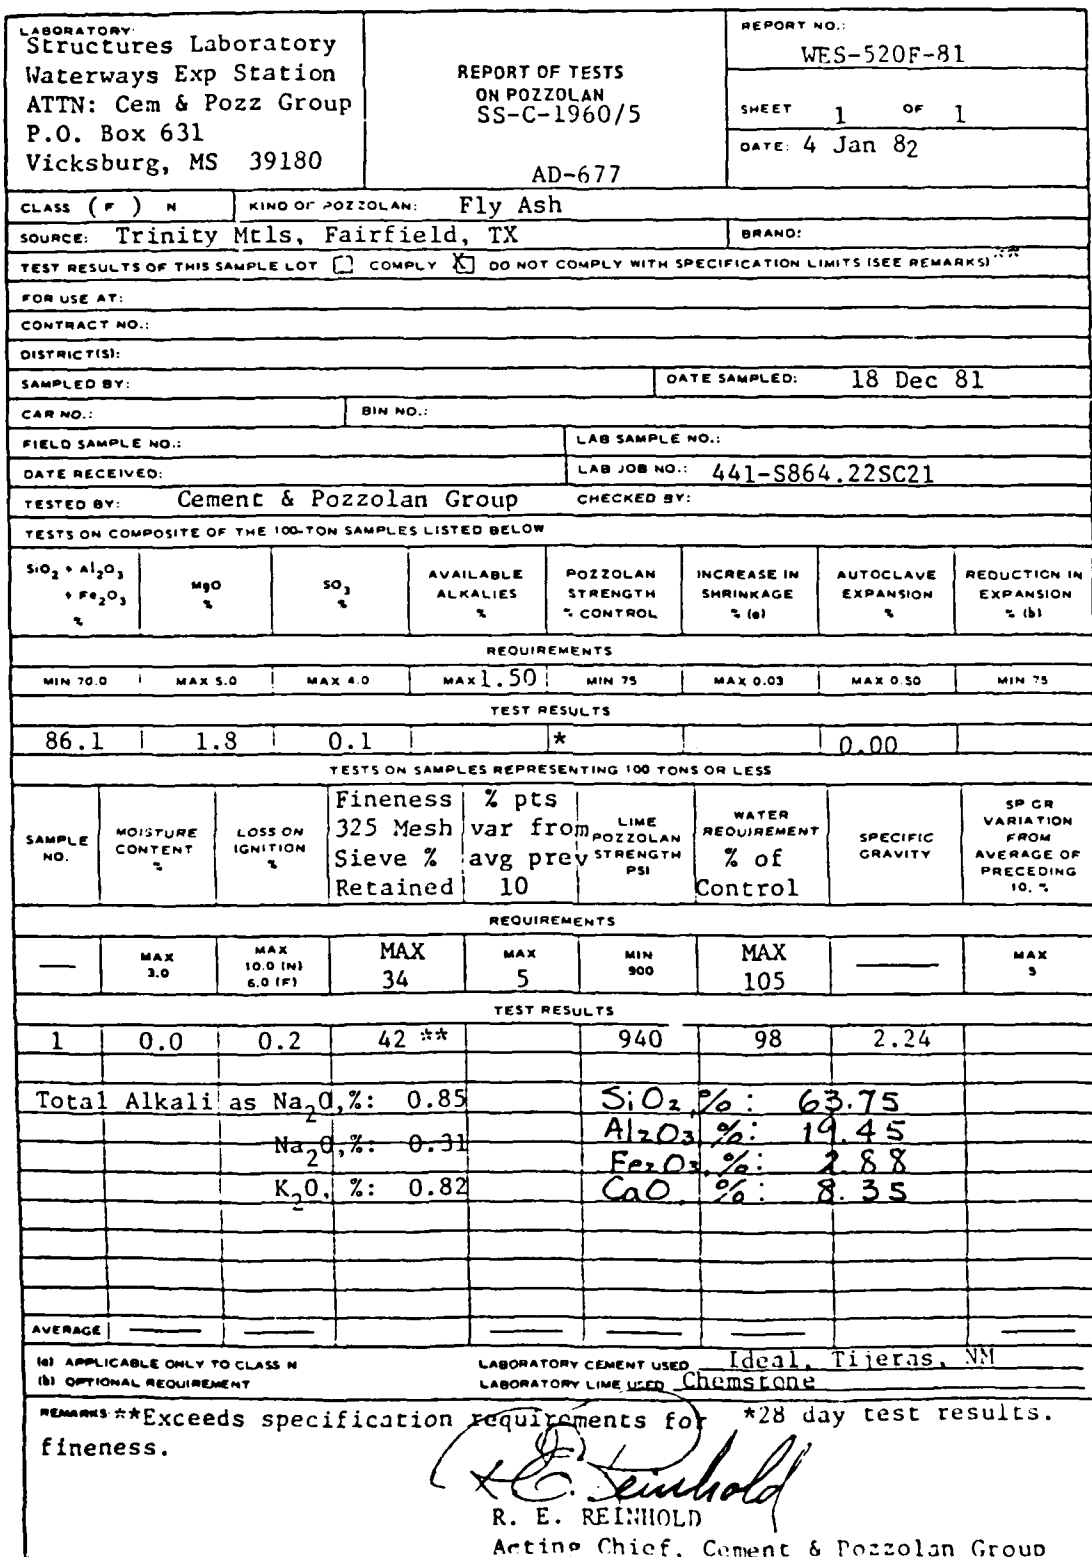 LABORATORY:
Structures Laboratory
Waterways Exp Station
ATTN: Cem & Pozz Group
P.O. Box 631
Vicksburg, MS 39180
REPORT OF TESTS
ON POZZOLAN
SS-C-1960/5
AD-677
REPORT NO.:
WES-520F-81
SHEET 1 OF 1
DATE: 4 Jan 82
CLASS (F) N KIND OF POZZOLAN: Fly Ash
SOURCE: Trinity Mtls, Fairfield, TX BRAND:
TEST RESULTS OF THIS SAMPLE LOT [ ] COMPLY [X] DO NOT COMPLY WITH SPECIFICATION LIMITS (SEE REMARKS) **
FOR USE AT:
CONTRACT NO.:
DISTRICT(S):
SAMPLED BY: DATE SAMPLED: 18 Dec 81
CAR NO.: BIN NO.:
FIELD SAMPLE NO.: LAB SAMPLE NO.:
DATE RECEIVED: LAB JOB NO.: 441-S864.22SC21
TESTED BY: Cement & Pozzolan Group CHECKED BY:
TESTS ON COMPOSITE OF THE 100-TON SAMPLES LISTED BELOW
SiO2 + Al2O3 + Fe2O3 % MgO % SO3 % AVAILABLE ALKALIES % POZZOLAN STRENGTH % CONTROL INCREASE IN SHRINKAGE % (a) AUTOCLAVE EXPANSION % REDUCTION IN EXPANSION % (b)
REQUIREMENTS
MIN 70.0 MAX 5.0 MAX 4.0 MAX 1.50 MIN 75 MAX 0.03 MAX 0.50 MIN 75
TEST RESULTS
86.1 1.8 0.1 * 0.00
TESTS ON SAMPLES REPRESENTING 100 TONS OR LESS
SAMPLE NO. MOISTURE CONTENT % LOSS ON IGNITION % Fineness 325 Mesh Sieve % Retained % pts var from avg prev 10 LIME POZZOLAN STRENGTH PSI WATER REQUIREMENT % of Control SPECIFIC GRAVITY SP GR VARIATION FROM AVERAGE OF PRECEDING 10, %
REQUIREMENTS
— MAX 3.0 MAX 10.0 (N) 6.0 (F) MAX 34 MAX 5 MIN 900 MAX 105 — MAX 5
TEST RESULTS
1 0.0 0.2 42 ** 940 98 2.24
Total Alkali as Na2O,%: 0.85 SiO2,%: 63.75
Na2O,%: 0.31 Al2O3,%: 19.45
Fe2O3,%: 2.88
K2O, %: 0.82 CaO, %: 8.35
AVERAGE — — — — — — —
(a) APPLICABLE ONLY TO CLASS N LABORATORY CEMENT USED Ideal, Tijeras, NM
(b) OPTIONAL REQUIREMENT LABORATORY LIME USED Chemstone
REMARKS **Exceeds specification requirements for *28 day test results.
fineness.
R. E. Reinhold
R. E. REINHOLD
Acting Chief, Cement & Pozzolan Group